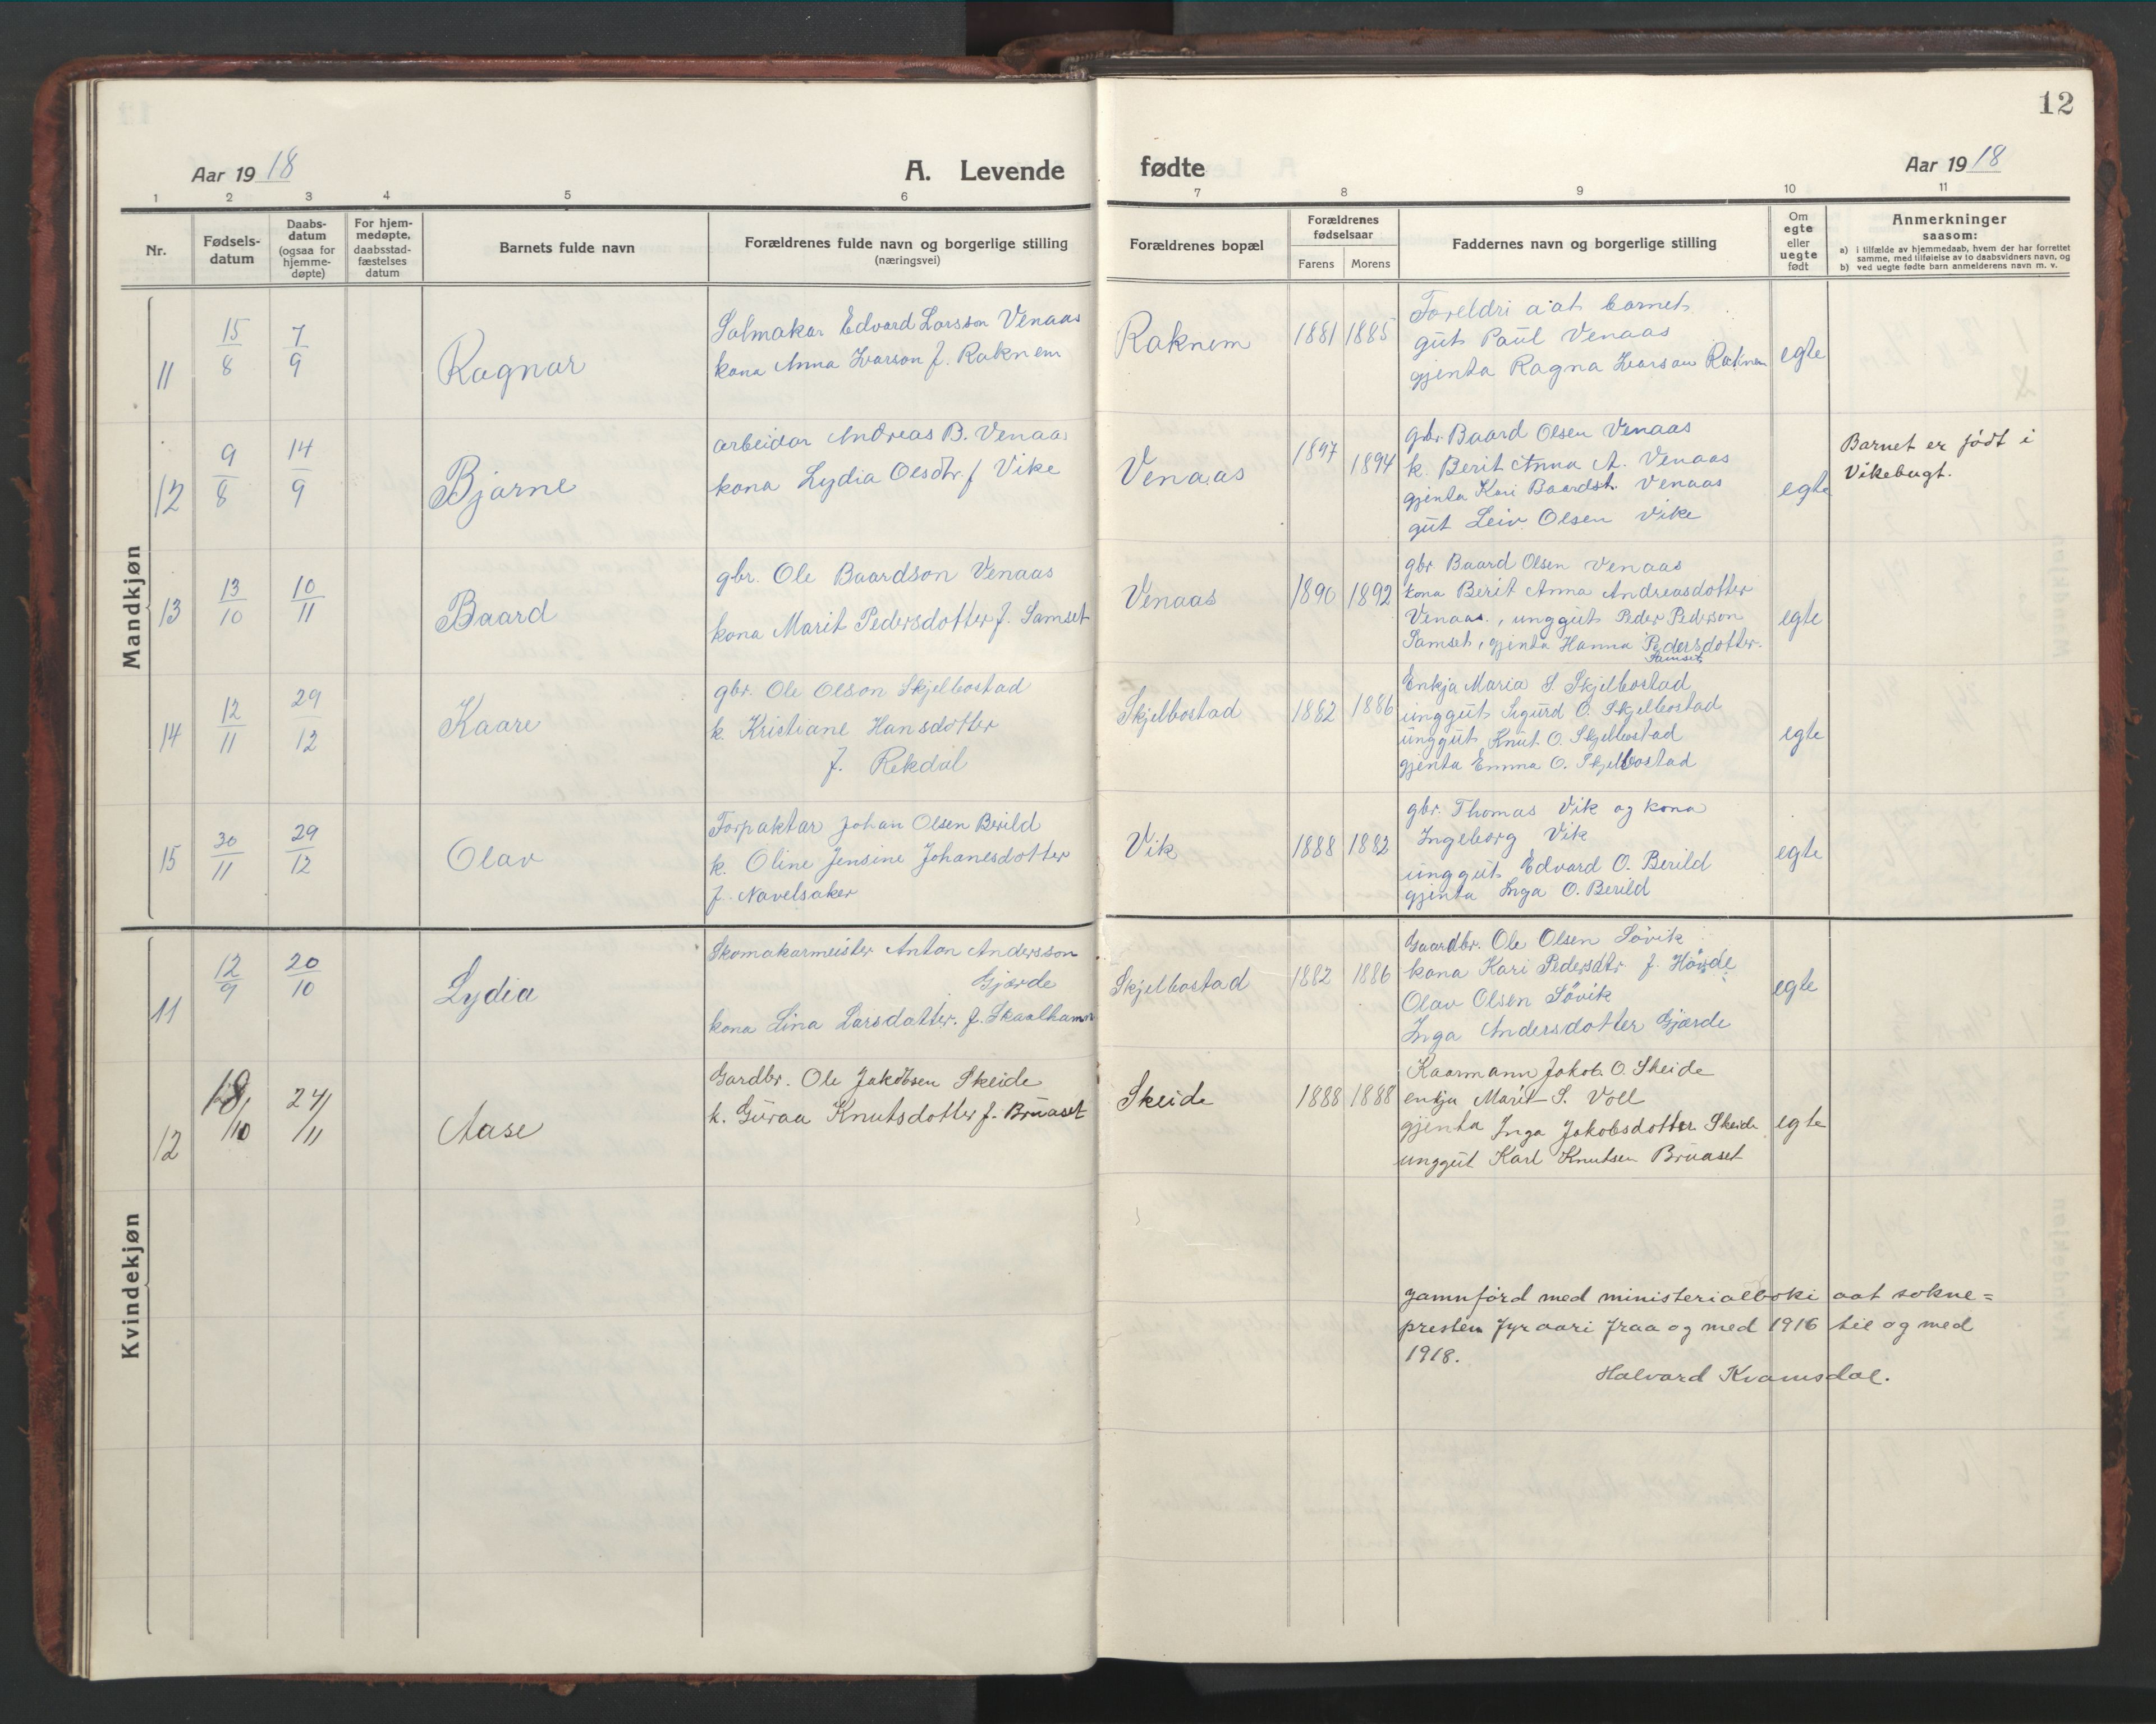 12
Aar 1918
A. Levende fødte
Aar 1918
1 2 3 4 5 6 7 8 9 10 11
Nr.
Fødsels-
datum
Daabs-
datum
(ogsaa for
hjemme-
døpte)
For hjem-
medøpte,
daabsstad-
fæstelses
datum
Barnets fulde navn
Forældrenes fulde navn og borgerlige stilling
(næringsvei)
Forældrenes bopæl
Forældrenes
fødselsaar
Farens Morens
Faddernes navn og borgerlige stilling
Om
egte
eller
uegte
født
Anmerkninger
saasom:
a) i tilfælde av hjemmedaab, hvem der har forrettet
samme, med tilføielse av to daabsvidners navn, og
b) ved uegte fødte barn anmelderens navn m. v.
Mandkjøn
11
15/8
7/9
Ragnar
Salmakar Edvard Larsson Venaas
kona Anna Ivarson f. Raknem
Raknem
1881 1885
Foreldri aat barnet
gut Paul Venaas
gjenta Ragna Ivarson Raknem
egte
12
9/8
14/9
Bjarne
arbeidar Andreas B. Venaas
kona Lydia Olsdtr. f Vike
Venaas
1897 1894
gbr. Baard Olsen Venaas
k. Berit Anna A. Venaas
gjenta Kari Baardst. Venaas
gut Leiv Olsen Vike
egte
Barnet er født i
Vikebugt.
13
13/10
10/11
Baard
gbr. Ole Baardson Venaas
kona Marit Pedersdotter f. Samset
Venaas
1890 1892
gbr Baard Olsen Venaas
kona Berit Anna Andreasdotter
Venaas, unggut Peder Pederson
Samset, gjenta Hanna Pedersdotter
Samset
egte
14
12/11
29/12
Kaare
gbr. Ole Olson Skjelbostad
k. Kristiane Hansdotter
f. Rekdal
Skjelbostad
1882 1886
Enkja Maria S. Skjelbostad
unggut Sigurd O. Skjelbostad
unggut Knut O. Skjelbostad
gjenta Emma O. Skjelbostad
egte
15
30/11
29/12
Olav
Forpaktar Johan Olsen Berild
k. Oline Jensine Johanesdotter
f. Navelsaker
Vik
1888 1882
gbr. Thomas Vik og kona
Ingeborg Vik
unggut Edvard O. Berild
gjenta Inga O. Berild
egte
Kvindekjøn
11
12/9
20/10
Lydia
Skomakarmeister Anton Andersson
Gjærde
kona Lina Larsdatter. f. Skaalhamn
Skjelbostad
1882 1886
Gaardbr. Ole Olsen Søvik
kona Kari Pedersdtr f.
Olav Olsen Søvik
Inga Andersdotter Gjærde
egte
12
18/10
24/11
Aase
Gardbr. Ole Jakobsen Skeide
k. Guraa Knutsdotter f. Bruaset
Skeide
1888 1888
Kaarmann Jakob O. Skeide
enkja Marit S. Voll
gjenta Inga Jakobsdotter Skeide
unggut Karl Knutsen Bruaset
egte
Jamnførd med ministerialboki aat sokne=
presten fyr aari fraa og med 1916 til og med
1918.
Halvard Kvamsdal.